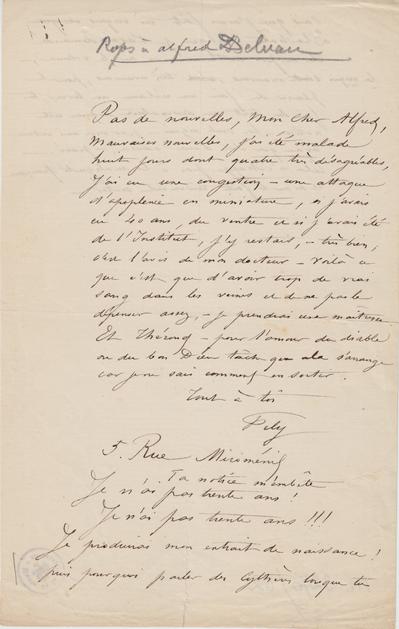 Rops à Alfred Delvau
Pas de nouvelles, Mon cher Alfred,
Mauvaises nouvelles, j'ai été malade
huit jours dont quatre très désagréables,
J'ai eu une congestion – une attaque
d'apoplexie en miniature, si j'avais
eu 40 ans, du ventre et si j'avais été
de l'Institut, j'y restais, – très bien,
c'est l'avis de mon docteur – voilà ce
que c'est que d'avoir trop de vrai
sang dans les veines et de ne pas le
dépenser assez, – je prendrai une maîtresse
Et Thérond – pour l'amour du diable
ou du bon Dieu tâche que cela s'arrange
car je ne sais comment en sortir.
Tout à toi
Fély
5. Rue Miroménil
Ta notice m'embête
Je n'ai pas trente ans !
Je n'ai pas trente ans !!!
Je produirai mon extrait de naissance !
puis pourquoi parler des Cythères lorsque tu